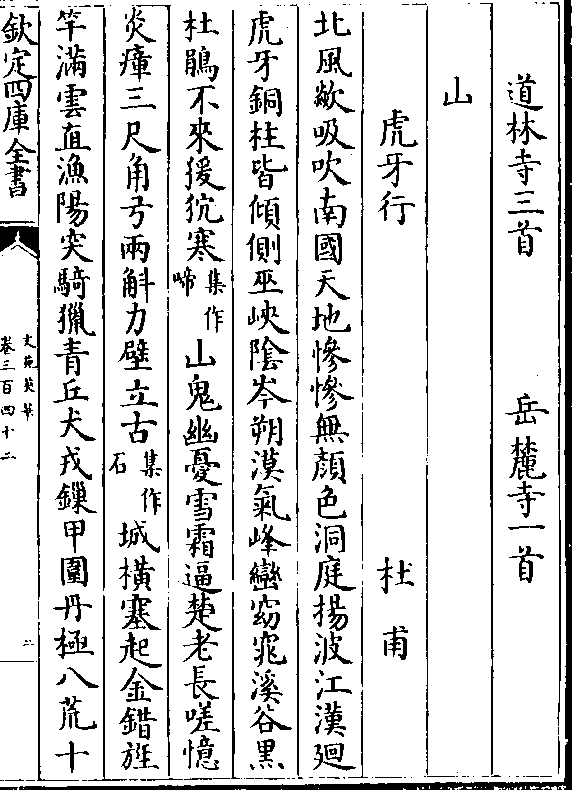 道林寺三首　岳麓寺一首
山
虎牙行　杜甫
北風歘吸吹南國天地慘慘無顏色洞庭揚波江漢迴
虎牙銅柱皆傾側巫峽陰岑朔漠氣峰巒窈窕溪谷黒
杜鵑不來猨狖寒集作啼山鬼幽憂雪霜逼楚老長嗟憶
炎瘴三尺角弓兩斛力壁立古集作石城橫塞起金錯旌
竿滿雲直漁陽突騎獵青丘犬戎鏁甲圍丹極八荒十
欽定四庫全書
文苑英華
卷三百四十二
二